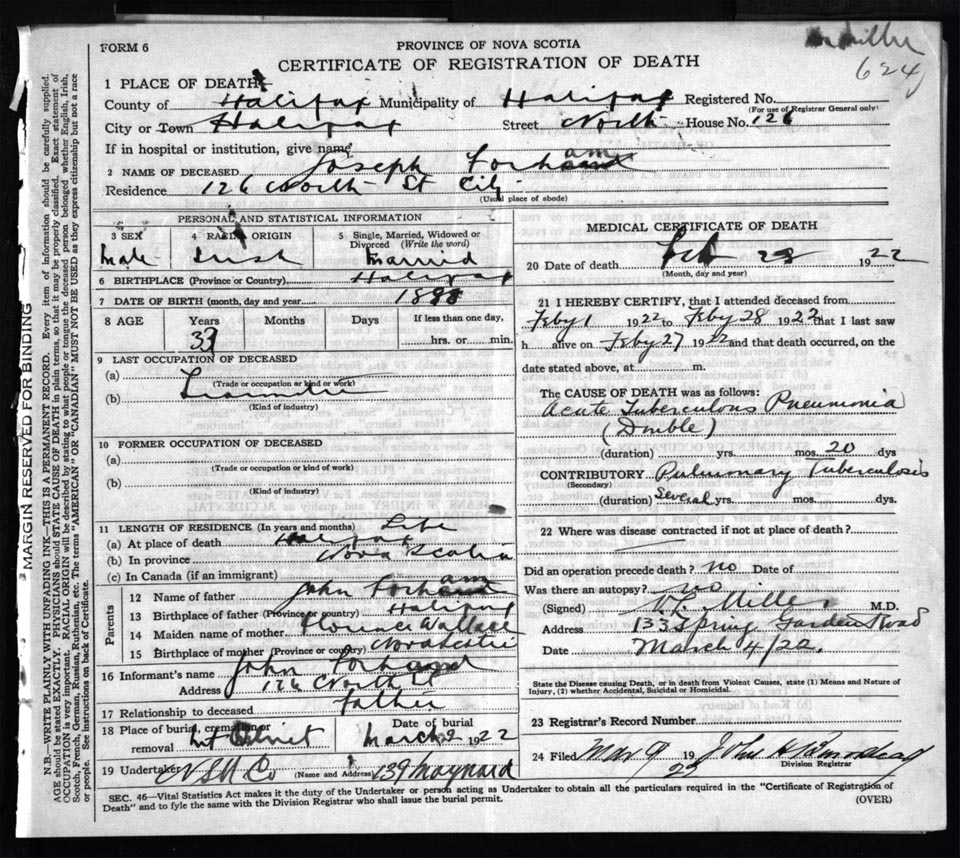 Miller
624
FORM 6
PROVINCE OF NOVA SCOTIA
CERTIFICATE OF REGISTRATION OF DEATH
1 PLACE OF DEATH
County of Halifax Municipality of Halifax Registered No.
(For use of Registrar General only)
City or Town Halifax Street North House No. 126
If in hospital or institution, give name
2 NAME OF DECEASED Joseph Forham
Residence 126 North St City
(Usual place of abode)
PERSONAL AND STATISTICAL INFORMATION
3 SEX 4 RACIAL ORIGIN 5 Single, Married, Widowed or Divorced (Write the word)
Male Irish Married
6 BIRTHPLACE (Province or Country) Halifax
7 DATE OF BIRTH (month, day and year)
8 AGE Years Months Days If less than one day,
33 hrs. or min.
9 LAST OCCUPATION OF DECEASED
(a)
(Trade or occupation or kind or work)
(b)
(Kind of industry)
10 FORMER OCCUPATION OF DECEASED
(a)
(Trade or occupation or kind of work)
(b)
(Kind of industry)
11 LENGTH OF RESIDENCE (In years and months) Life
(a) At place of death Halifax
(b) In province Nova Scotia
(c) In Canada (if an immigrant)
Parents
12 Name of father John Forham
13 Birthplace of father (Province or country) Halifax
14 Maiden name of mother Florence Wallace
15 Birthplace of mother (Province or country) Nova Scotia
16 Informant's name John Forham
Address 126 North St
17 Relationship to deceased father
18 Place of burial, cremation or removal Mt Olivet Date of burial March 2 1922
19 Undertaker N S U Co (Name and Address) 139 Maynard
MEDICAL CERTIFICATE OF DEATH
20 Date of death Feb 28 1922
(Month, day and year)
21 I HEREBY CERTIFY, that I attended deceased from
Feby 1 1922 to Feby 28 1922 that I last saw
h alive on Feby 27 1922 and that death occurred, on the
date stated above, at m.
The CAUSE OF DEATH was as follows:
Acute Tuberculous Pneumonia
(Double)
(duration) yrs. mos. 20 dys
CONTRIBUTORY Pulmonary Tuberculosis
(Secondary)
(duration) Several yrs. mos. dys.
22 Where was disease contracted if not at place of death?
Did an operation precede death? no Date of
Was there an autopsy? no
(Signed) Miller M.D.
Address 133 Spring Garden Road
Date March 4/22.
State the Disease causing Death, or in death from Violent Causes, state (1) Means and Nature of
Injury, (2) whether Accidental, Suicidal or Homicidal.
23 Registrar's Record Number
24 Filed Mar 9 19 22 John H
Division Registrar
SEC. 46—Vital Statistics Act makes it the duty of the Undertaker or person acting as Undertaker to obtain all the particulars required in the "Certificate of Registration of
Death" and to fyle the same with the Division Registrar who shall issue the burial permit.
(OVER)
MARGIN RESERVED FOR BINDING
N.B.—WRITE PLAINLY WITH UNFADING INK—THIS IS A PERMANENT RECORD. Every item of information should be carefully supplied.
AGE should be stated EXACTLY. PHYSICIANS should STATE CAUSE OF DEATH in plain terms, so that it may be properly classified. Exact statement of
OCCUPATION is very important. RACIAL ORIGIN will be described by stating to what people or tongue the deceased person belonged whether English, Irish,
Scotch, French, German, Russian, Ruthenian, etc. The terms "AMERICAN" OR "CANADIAN" MUST NOT BE USED as they express citizenship but not a race
or people. See instructions on back of Certificate.